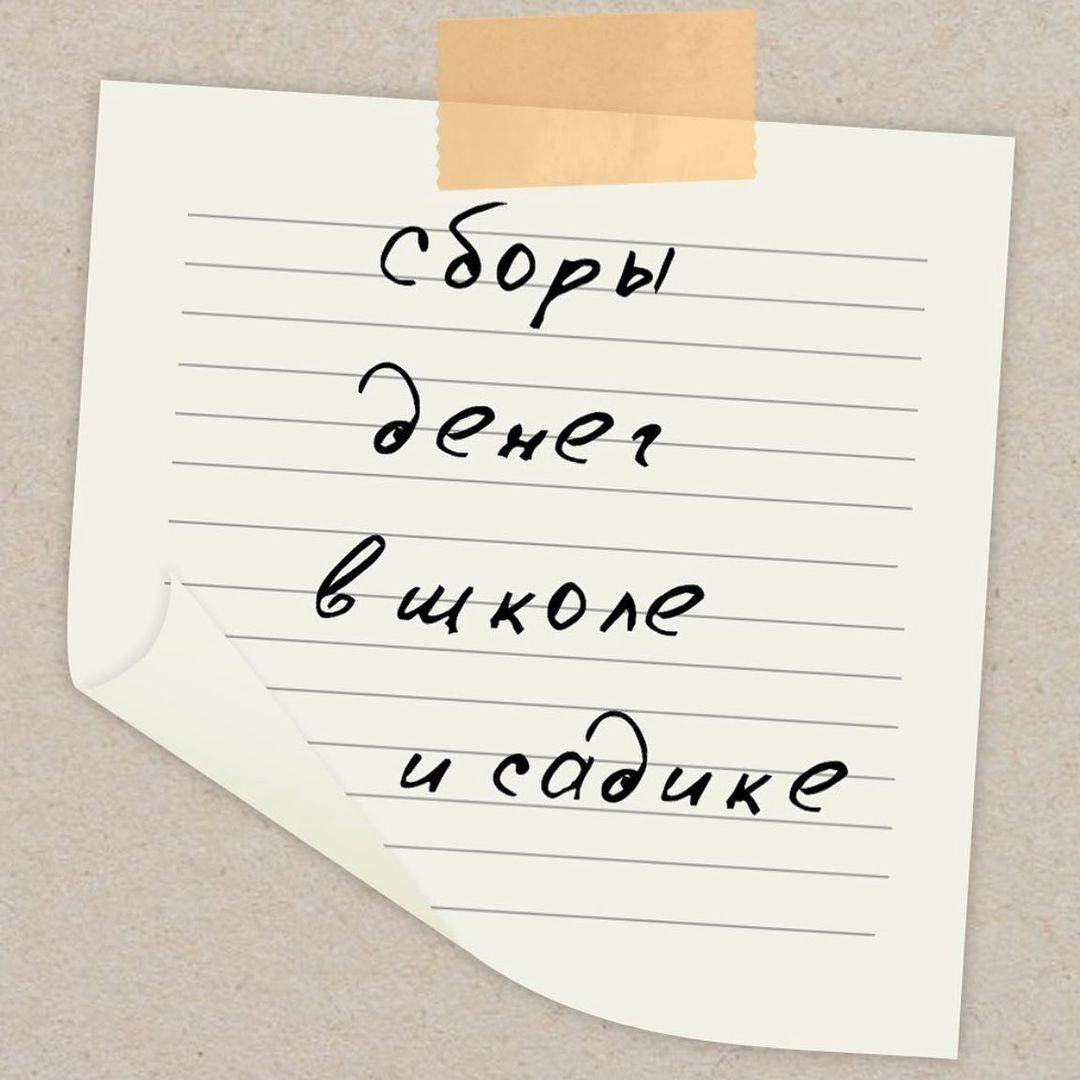 сборы
денег
в школе
и садике